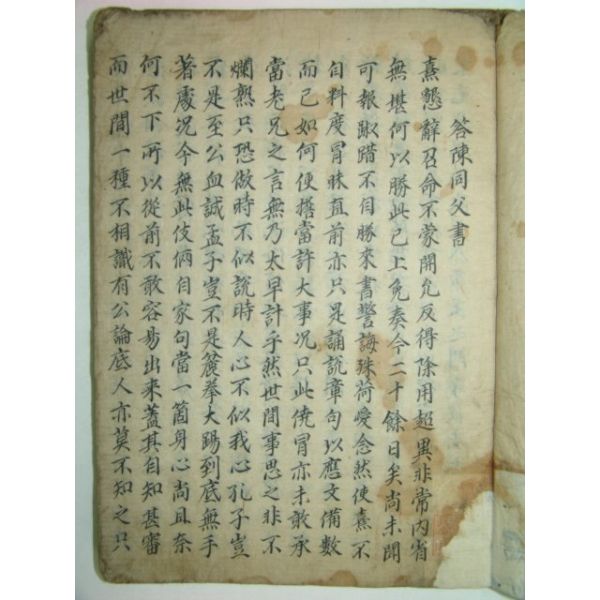 答陳同父書
熹懇辭召命不蒙開允反得除用超異非常內省
無堪何以勝此已上免奏今二十餘日矣尚未聞
可報踧踖不自勝來書警誨殊荷愛念然使熹不
自料度冒昧直前亦只是誦說章句以應文備數
而已如何便擔當許大事況只此僥冒亦未敢承
當老兄之言無乃太早計乎然世間事思之非不
爛熟只恐做時不似說時人心不似我心孔子豈
不是至公血誠孟子豈不是麄拳大踢到底無手
著處況今無此伎倆自家句當一箇身心尚且奈
何不下所以從前不敢容易出來蓋其自知甚審
而世間一種不相識有公論底人亦莫不知之只